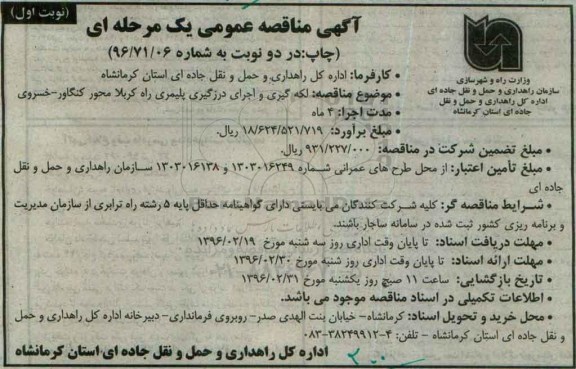 (نوبت اول)
آگهی مناقصه عمومی یک مرحله ای
(چاپ:در دو نوبت به شماره ۹۶/۷۱/۰۶)
وزارت راه و شهرسازی
سازمان راهداری و حمل و نقل جاده ای
اداره کل راهداری و حمل و نقل
جاده ای استان کرمانشاه
• کارفرما: اداره کل راهداری و حمل و نقل جاده ای استان کرمانشاه
• موضوع مناقصه: لکه گیری و اجرای درزگیری پلیمری راه کربلا محور کنگاور-خسروی
• مدت اجرا: ۴ ماه
• مبلغ برآورد: ۱۸/۶۲۴/۵۲۱/۷۱۹ ریال.
• مبلغ تضمین شرکت در مناقصه: ۹۳۱/۲۲۷/۰۰۰ ریال.
• مبلغ تأمین اعتبار: از محل طرح های عمرانی شماره ۱۳۰۳۰۱۶۲۴۹ و ۱۳۰۳۰۱۶۱۳۸ سازمان راهداری و حمل و نقل
جاده ای
• شرایط مناقصه گر: کلیه شرکت کنندگان می بایستی دارای گواهینامه حداقل پایه ۵ رشته راه ترابری از سازمان مدیریت
و برنامه ریزی کشور ثبت شده در سامانه ساجار باشند.
• مهلت دریافت اسناد: تا پایان وقت اداری روز سه شنبه مورخ ۱۳۹۶/۰۲/۱۹
• مهلت ارائه اسناد: تا پایان وقت اداری روز شنبه مورخ ۱۳۹۶/۰۲/۳۰
• تاریخ بازگشایی: ساعت ۱۱ صبح روز یکشنبه مورخ ۱۳۹۶/۰۲/۳۱
• اطلاعات تکمیلی در اسناد مناقصه موجود می باشد.
• محل خرید و تحویل اسناد: کرمانشاه- خیابان بنت الهدی صدر- روبروی فرمانداری- دبیرخانه اداره کل راهداری و حمل
و نقل جاده ای استان کرمانشاه - تلفن: ۴-۳۸۲۴۹۹۱۲-۰۸۳
اداره کل راهداری و حمل و نقل جاده ای استان کرمانشاه